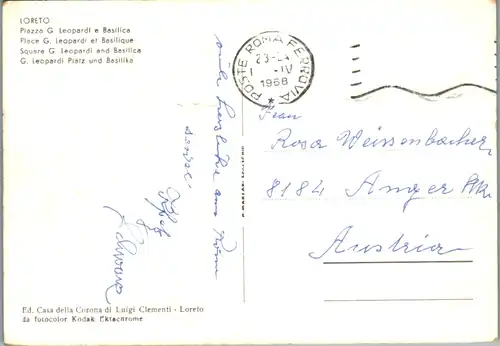 LORETO
Piazza G Leopardi e Basilica
Place G. Leopardi et Basilique
Square G Leopardi and Basilica
G. Leopardi Platz und Basilika
POSTE ROMA FERROVIA
23-24
1 -IV
1968
Frau
Rosa Weissenbacher
8184 Anger
Austria
herzliche aus Rom
sendet
Schwarz
Ed. Casa della Corona di Luigi Clementi - Loreto
da fotocolor Kodak Ektachrome